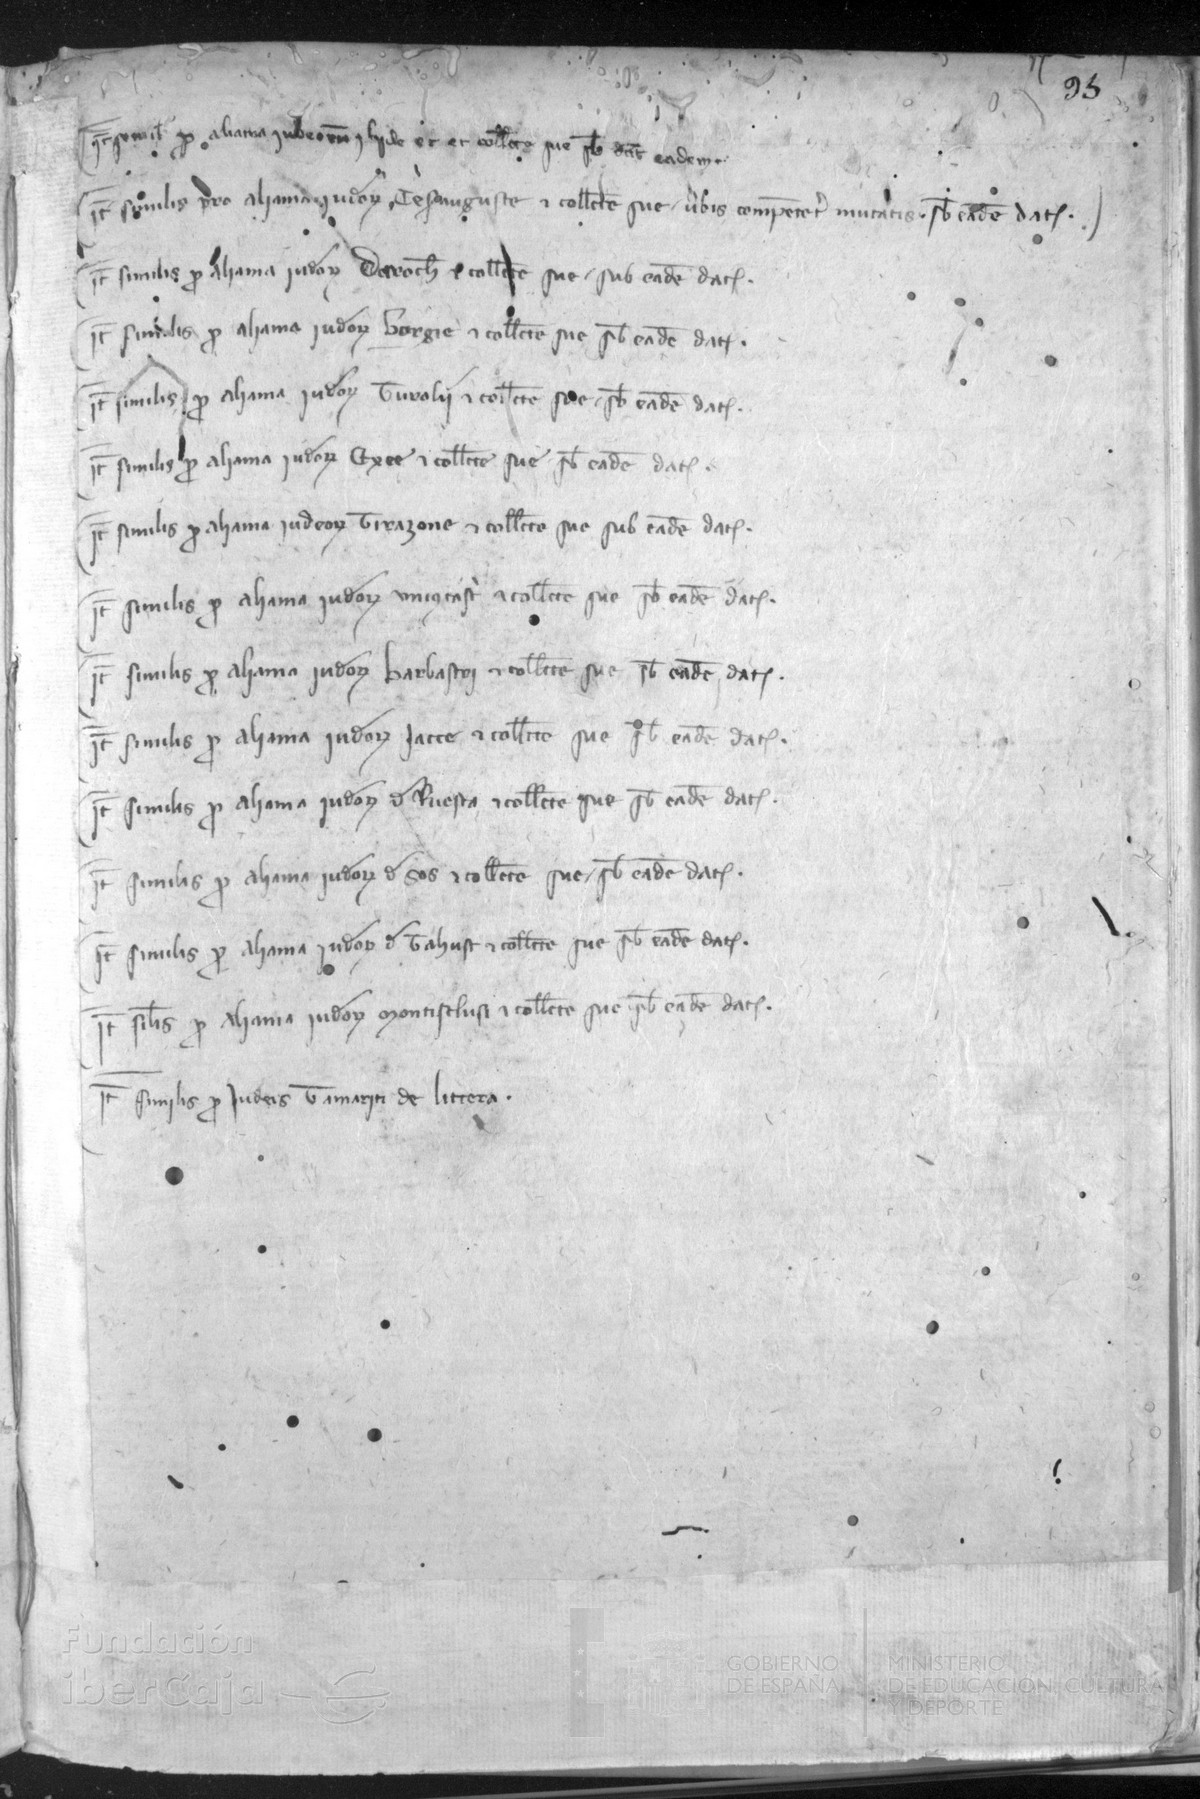 95
It simil pro aliama iudeorum et collcte sue sb dat eadem.
It similis pro aliama iudeor Cesarauguste & collcte sue / vbis competetr mutatis. sb eade dat.
It similis pro aliama iudeor Daroch & collcte sue / sub eade dat.
It similis pro aliama iudeor Borgie & collcte sue sb eade dat.
It similis pro aliama iudeor Turolij & collcte sue / sb eade dat.
It similis pro aliama iudeor Exee & collcte sue sb eade dat.
It similis pro aliama iudeor Tirazone & collcte sue sub eade dat.
It similis pro aliama iudeor vnicast & collcte sue sb eade dat.
It similis pro aliama iudeor barbastri & collcte sue sb eade dat.
It similis pro aliama iudeor Jacce & collcte sue sb eade dat.
It similis pro aliama iudeor d Ruesta & collcte sue sb eade dat.
It similis pro aliama iudeor d Sos & collcte sue / sb eade dat.
It similis pro aliama iudeor d Tahust & collcte sue sb eade dat.
It silis pro aliama iudeor montisclusi & collcte sue sb eade dat.
It similis pro Judeis Tamariti de littera.
Fundación
iberCaja
GOBIERNO
DE ESPAÑA
MINISTERIO
DE EDUCACIÓN, CULTURA
Y DEPORTE